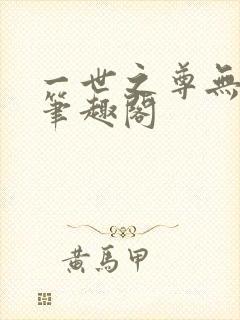 一世之尊無
筆趣閣
黃馬甲